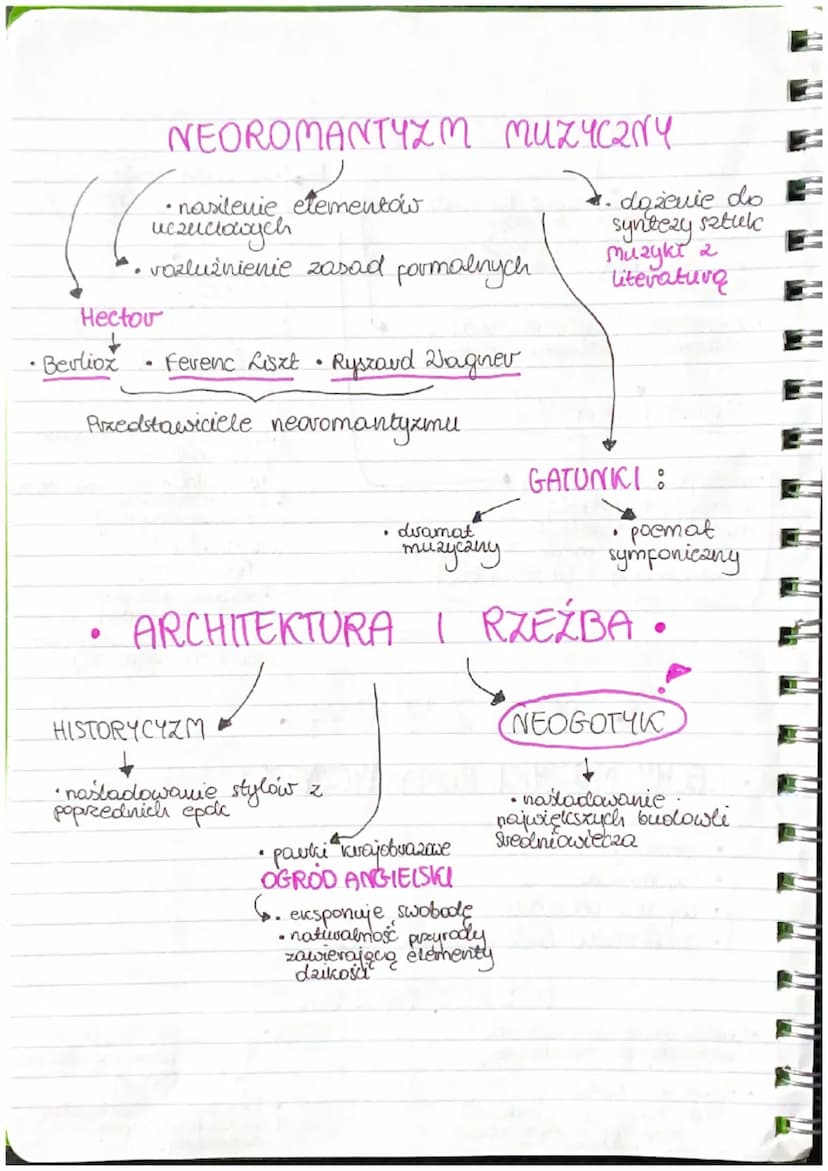 NEOROMANTYZM MUZYCZNY
• nasilenie elementów
uczuciowych
• rozluźnienie zasad formalnych
• dążenie do
syntezy sztuk
muzyki z
literaturą
Hector
• Berlioz • Ferenc Liszt • Ryszard Wagner
Przedstawiciele neoromantyzmu
GATUNKI :
• dramat
muzyczny
• poemat
symfoniczny
• ARCHITEKTURA I RZEŹBA •
HISTORYCYZM
• naśladowanie stylów z
poprzednich epok
NEOGOTYK
• naśladowanie
największych budowli
średniowiecza
• parki krajobrazowe
OGRÓD ANGIELSKI
• eksponuje swobodę
• naturalność przyrody
zawierającą elementy
dzikości